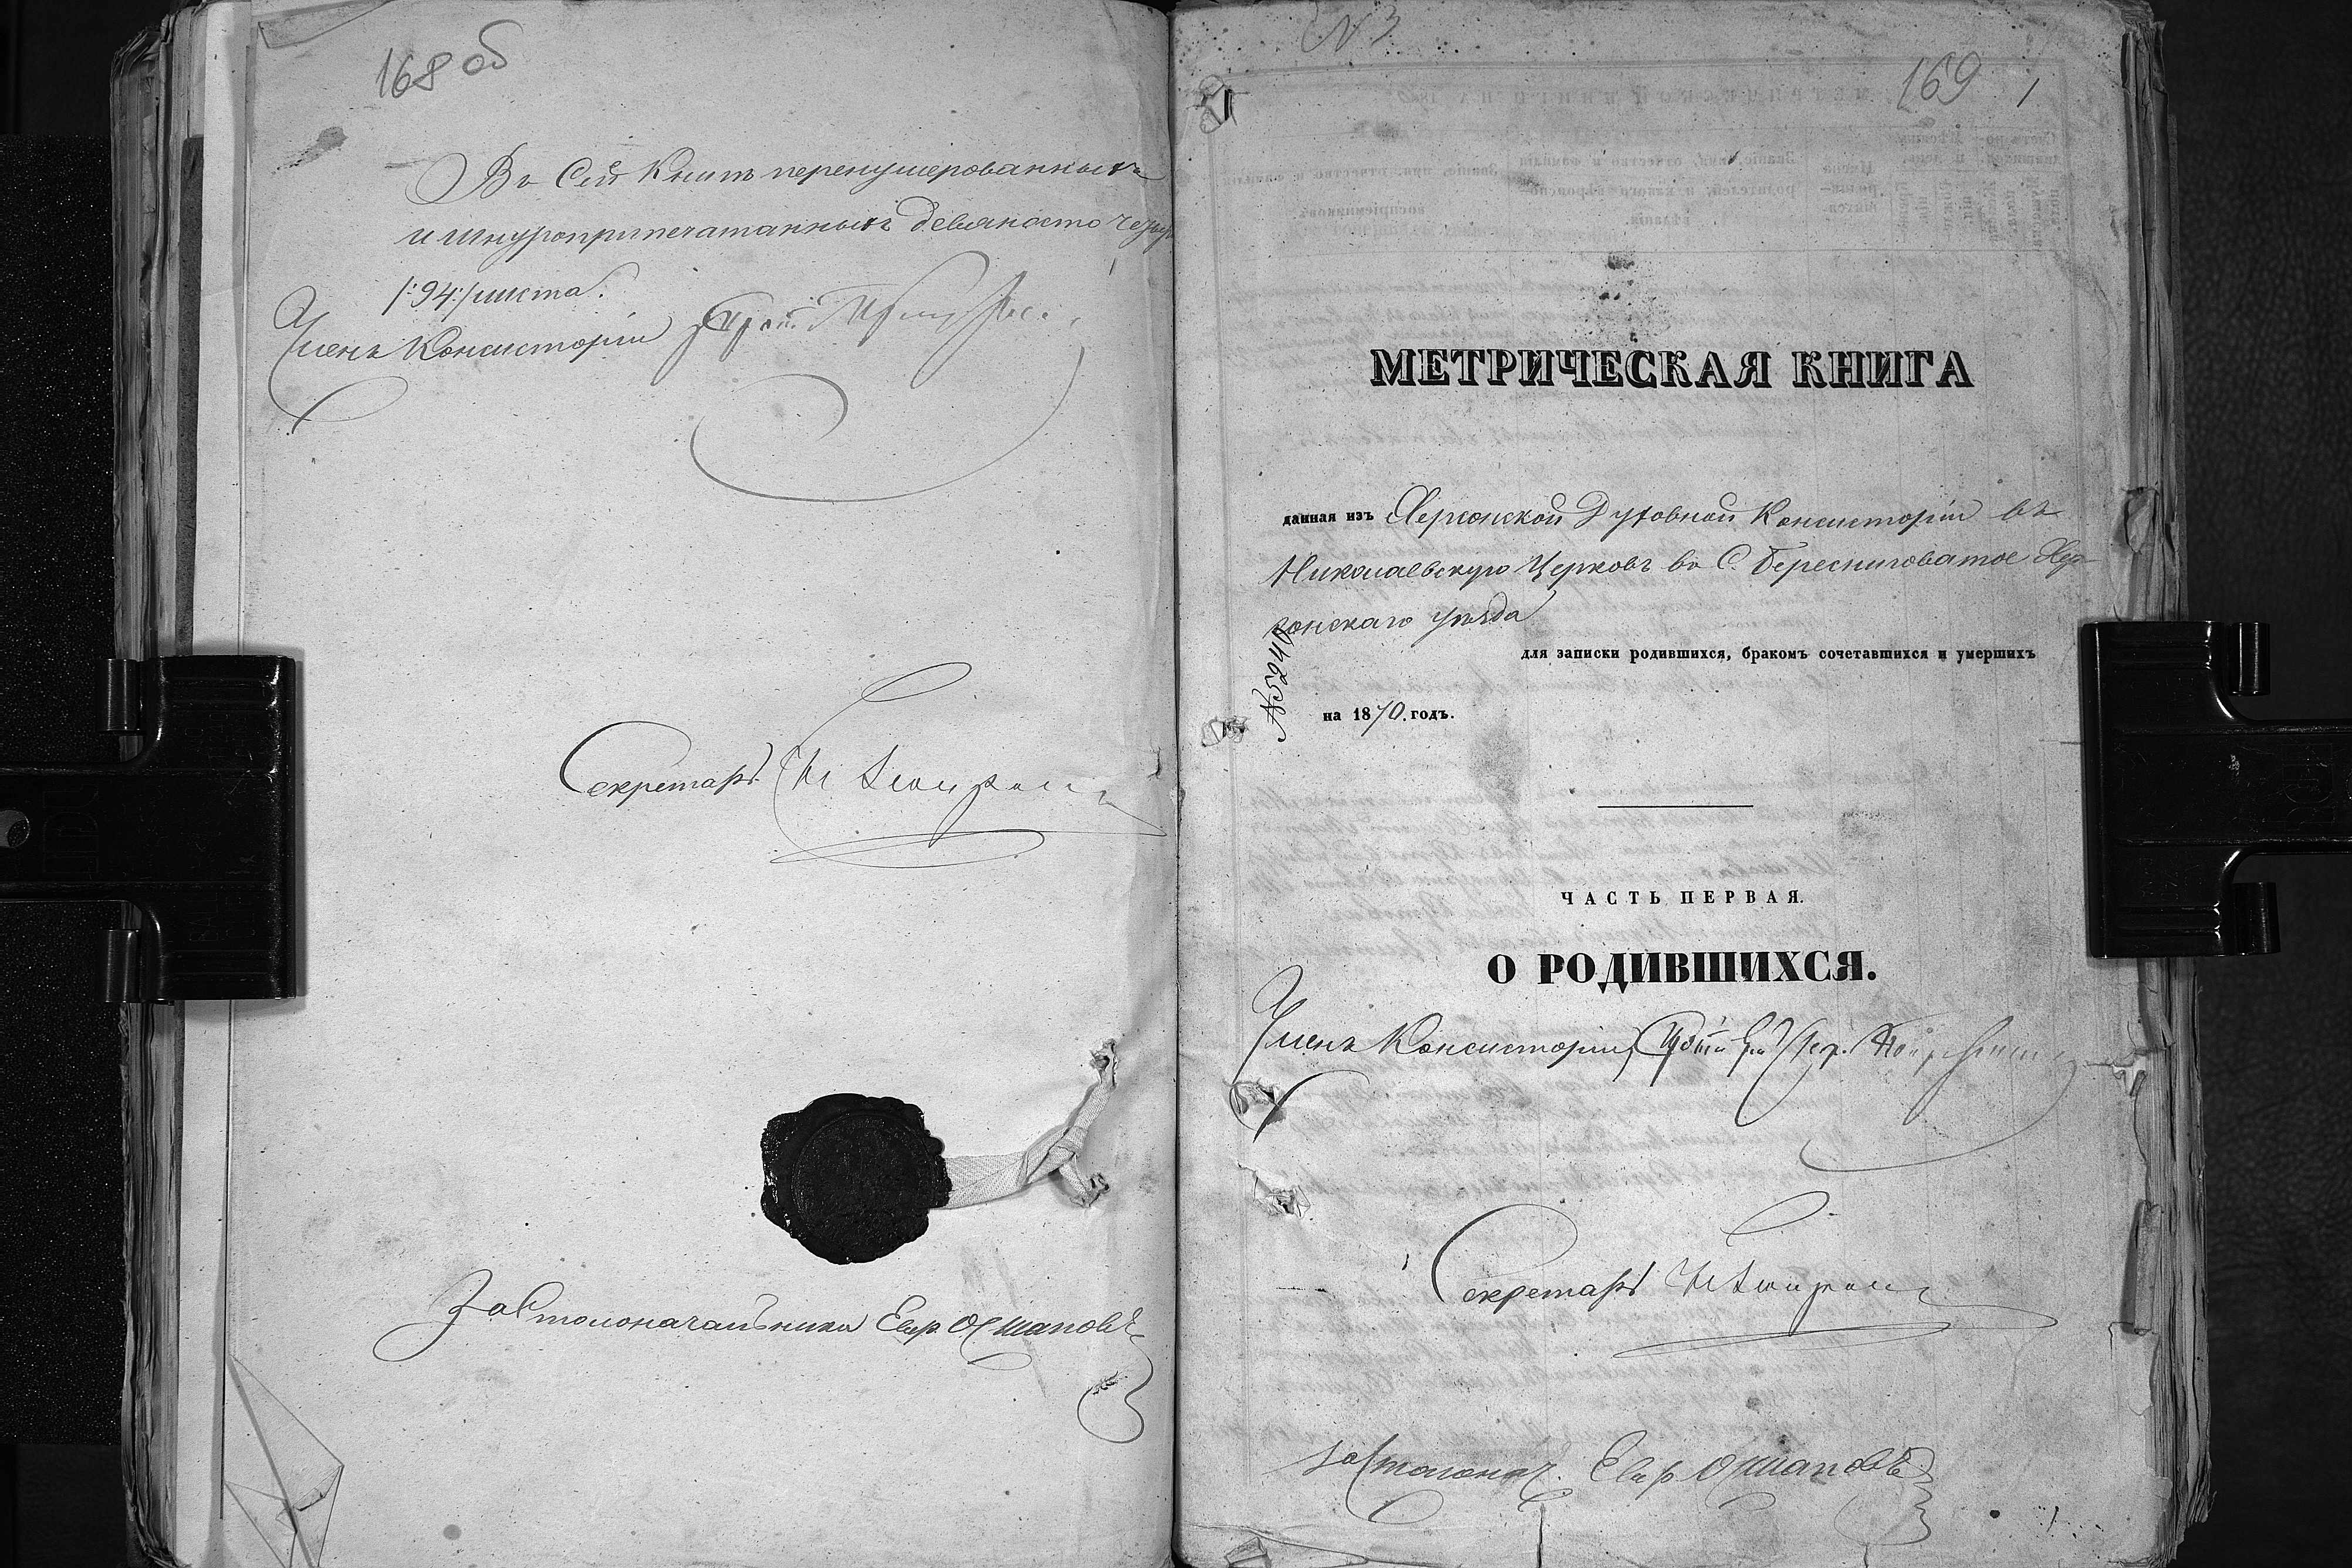 168 об
Въ Сей Книгѣ перенумерованныхъ
и шнуроприпечатанныхъ девяносто четыр
/:94:/ листа.
Членъ Консисторіи
Секретарь
За Столоначальника
N 3
169 1
МЕТРИЧЕСКАЯ КНИГА
данная изъ Херсонской Духовной Консисторіи въ
Николаевскую Церковь въ С. Береснеговатое Хер-
сонскаго уѣзда
для записки родившихся, бракомъ сочетавшихся и умершихъ
№ 5240
на 1870. годъ.
ЧАСТЬ ПЕРВАЯ.
О РОДИВШИХСЯ.
Членъ Консисторіи
Секретарь
за Столонач.